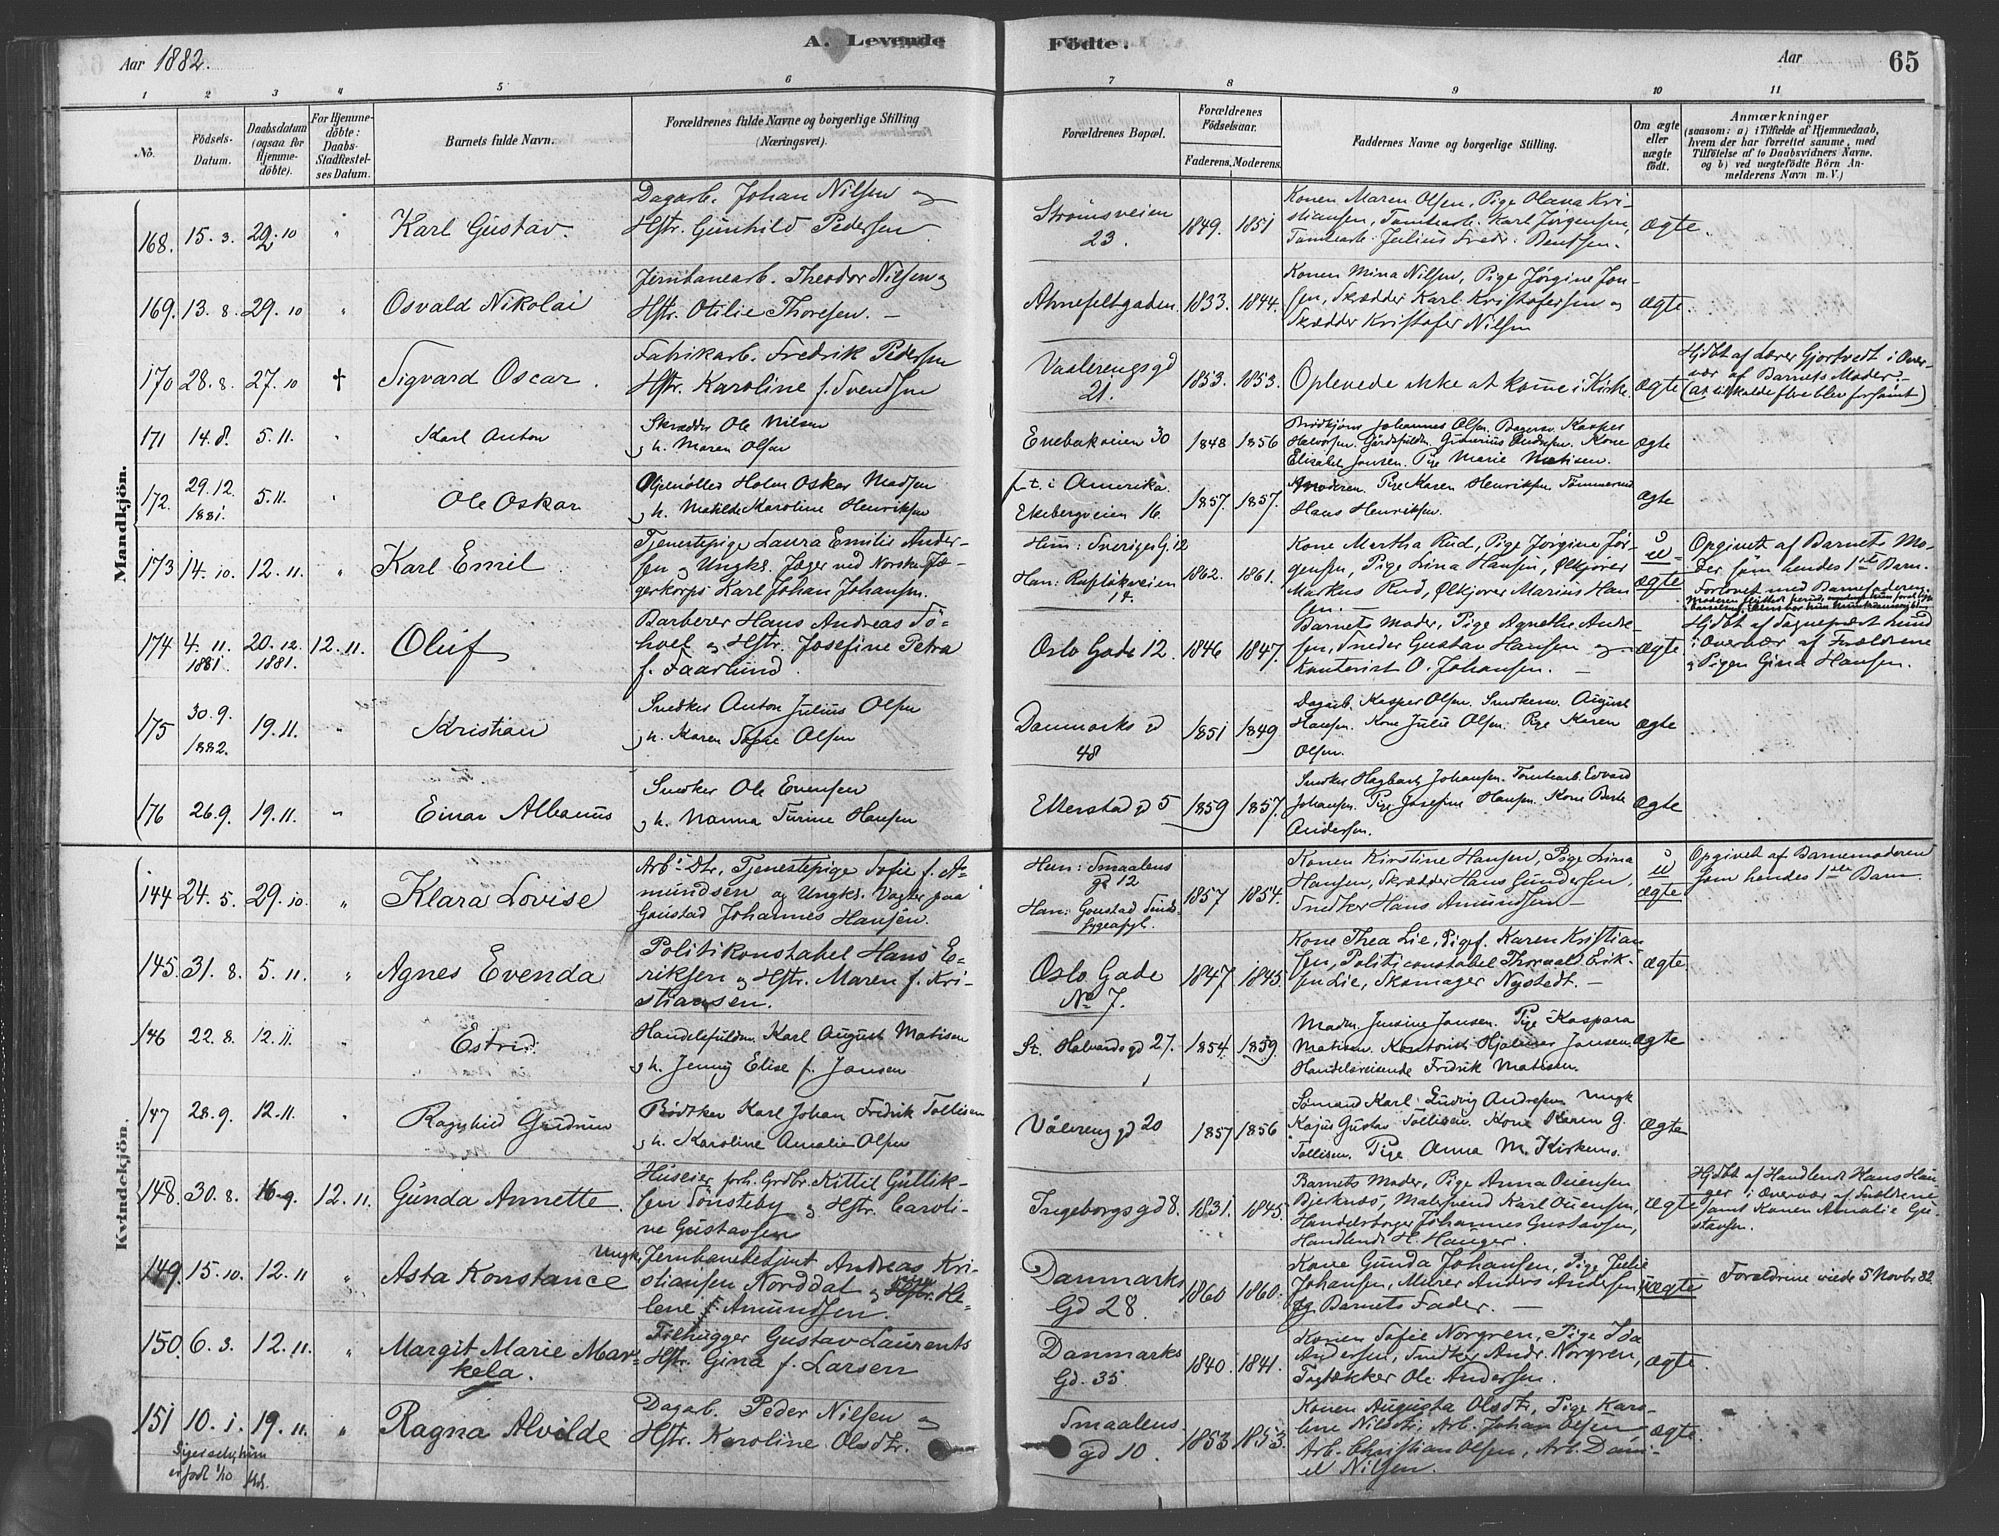 Aar 1882.
A. Levende
Födte.
Aar
65
1 2 3 4 5 6 7 8 9 10 11
No.
Födsels-
Datum.
Daabsdatum
(ogsaa for
Hjemme-
döbte).
For Hjemme-
döbte:
Daabs-
Stadfæstel-
ses Datum.
Barnets fulde Navn.
Forældrenes fulde Navne og borgerlige Stilling
(Næringsvei).
Forældrenes Bopæl.
Forældrenes
Födselsaar.
Faderens. Moderens.
Faddernes Navne og borgerlige Stilling.
Om ægte
eller
uægte
födt.
Anmærkninger
(saasom: a) i Tilfælde af Hjemmedaab,
hvem der har forrettet samme, med
Tilföielse af to Daabsvidners Navne.
og b) ved uægtefödte Börn An-
melderens Navn m. V.)
Mandkjön.
168. 15. 3. 29. 10 " Karl Gustav.
Dagarb. Johan Nilsen og
Hstr. Gunhild Pedersen
Strømsveien
23.
1849. 1851
Konen Maren Olsen, Pige Olava Kri-
stiansen, Tomtearb. Karl Jørgensen,
Tomtearb. Julius Fredr. Bentsen.
ægte.
169. 13. 8. 29. 10 " Osvald Nikolai
Jernbanearb. Theodor Nilsen og
Hstr. Otilie Thoresen. –
Ahnefeltgaden 1833. 1844.
Konen Mina Nilsen, Pige Jørgine Jon-
sen, Skrædder Karl Kristofersen og
Skrædder Kristofer Nilsen
ægte.
170 28. 8. 27. 10 † Sigvard Oscar.
Fabrikarb. Fredrik Pedersen
Hstr. Karoline f. Svendsen
Vaalerengsgd
21.
1853. 1853.
Oplevede ikke at komme i Kirke.
ægte
Hjdbt af Lærer Gjortvedt i Over-
vær af Barnets Moder –
(At tilkalde flere blev forsømt)
171 14. 8. 5. 11. " Karl Anton
Skrædder Ole Nilsen
og h. Maren Olsen
Enebakveien 30 1848 1856
Brødkjører Johannes Olsen. Bagersv. Kasper
Halvorsen. Gårdsfuldm. Gunerius Andresen. Kone
Elisabet Jansen. Pige Marie Matisen.
ægte
172. 29. 12.
1881.
5. 11. " Ole Oskar
Holm Oskar Madsen
og h. Matilde Karoline Henriksen
f. t. i Amerika.
Ekebergveien 16.
1857. 1857.
Moderen. Pige Karen Henriksen
Hans Henriksen.
ægte
173 14. 10. 12. 11. " Karl Emil
Tjenestepige Laura Emilie Ander-
sen og Ungk. Jæger ved Norske Jæ-
gerkorps Karl Johan Johansen.
Hun: Sveriges G. 12
1862. 1861.
Kone Martha Rud, Pige Jørgine Jør-
gensen, Pige Lina Hansen, Ølkjører
Markus Rud, Ølkjører Marius Han-
sen. –
u
ægte
Opgivet af Barnets Mo-
der som hendes 1ste Barn.
Forlovet med Barnefaderen.
174 4. 11.
1881
20. 12.
1881.
12. 11. Oluf
Barberer Hans Andreas Tö-
og Hstr. Josefine Petra
f. Faarlund.
Oslo Gade 12. 1846 1847.
Barnets Moder, Pige Agnethe Andr-
sen, Snedker Gustav Hansen og
Kontorist O. Johansen. –
ægte
Hjdbt af Sognepræst Lund
i Overvær af Forældrene
og Pigen Gina Hansen.
175 30. 9.
1882.
19. 11. " Kristian
Snedker Anton Julius Olsen
og h. Karen Sofie Olsen
Danmarks gd
48
1851 1849
Dagarb. Kasper Olsen. Snedkersv. August
Hansen. Kone Julie Olsen. Pige Karen
Olsen.
ægte
176 26. 9. 19. 11. " Einar Albanus
Snedker Ole Evensen
og h. Nanna Turine Hansen
Etterstad gd 5 1859 1857.
Snedker Hagbart Johansen. Tomtearb. Edvard
Johansen. Pige Josefine Hansen. Kone Berte
Andersen.
ægte
Kvindekjön.
144 24. 5. 29. 10. " Klara Lovise
Arb. Dtr., Tjenestepige Sofie f. A-
mundsen og Ungk. Vogter paa
Goustad Johannes Hansen.
Hun: Smaalens
gd 12
Han: Goustad Sinds-
sygeasyl.
1857 1854.
Konen Kirstine Hansen, Pige Lina
Hansen, Skrædder Hans Gundersen,
Snedker Hans Amundsen –
u
ægte
Opgivet af Barnemoderen
som hendes 1ste Barn.
145. 31. 8. 5. 11. " Agnes Evenda
Politikonstabel Hans E-
riksen og Hstr. Maren f. Kri-
stiansen.
Oslo Gade
No 7.
1847 1845.
Kone Thea Lie, Pige f. Karen Kristian-
sen, Politiconstabel Thorvald Erik-
sen Lie, Skomager Nystedt. –
ægte.
146 22. 8. 12. 11. " Estrid.
Handelsfuldm. Karl August Matisen
og h. Jenny Elise f. Jansen
St. Halvards gd 27. 1854. 1859.
Madm. Jensine Jansen. Pige Kaspara
Matisen. Kontorist Hjalmar Jansen.
Handelsreisende Fredrik Matisen.
ægte
147 28. 9. 12. 11. " Ragnhild Gudrun
Bødtker Karl Johan Fredrik Tollisen
og h. Karoline Amalie Olsen
Vålereng gd 20 1857 1856
Sømand Karl Ludvig Andresen Ungk
Kajus Gustav Tollisen. Kone Karen G.
Tollisen. Pige Anna M. Kirkens.
ægte
148. 30. 8. 16. 9. 12. 11. Gunda Annette.
Huseier forh. Grdbr. Kittil Gullik-
sen Tönsteby og Hstr. Caroli-
ne Gustavsen
Ingeborgsgd 8. 1831. 1845.
Barnets Moder, Pige Anna Ouensen
Bjerknæs, Malersvend Karl Ouensen,
Handelsborger Johannes Gustavsen,
Handlende H. Hanger.
ægte
Hjdbt af Handlende Hans Han-
ger i Overvær af Forældrene
samt Konen Amalie Gu-
stavsen.
149. 15. 10. 12. 11 " Asta Konstance
Ungk. Jernbanebetjent Andreas Kri-
stiansen Norddal og He-
lene f. Amundsen.
Danmarks
Gd 28
1860 1860.
Kone Gunda Johansen, Pige Julie
Johansen, Murer Anders Andersen
og Barnets Fader. –
uægte
Forældrene viede 5 Novbr. 82.
150. 6. 3. 12. 11. " Margit Marie Mar-
kela.
Filhugger Gustav Laurents
Hstr. Gina f. Larsen
Danmarks
Gd. 35
1840. 1841.
Konen Sofie Norgren, Pige Ida
Andersen, Snedker Andr. Norgren,
Tagtækker Ole Andersen.
ægte.
151 10. 1. 19. 11. " Ragna Alvilde
er født 1/10
Dagarb. Peder Nilsen og
Hstr. Karoline Olsdtr.
Smaalens
gd 10.
1853. 1853.
Konen Augusta Olsdtr, Pige Karo-
line Nilsdtr, Arb. Johan Olsen,
Arb. Christian Olsen, Arb. Dani-
el Nilsen.
ægte.